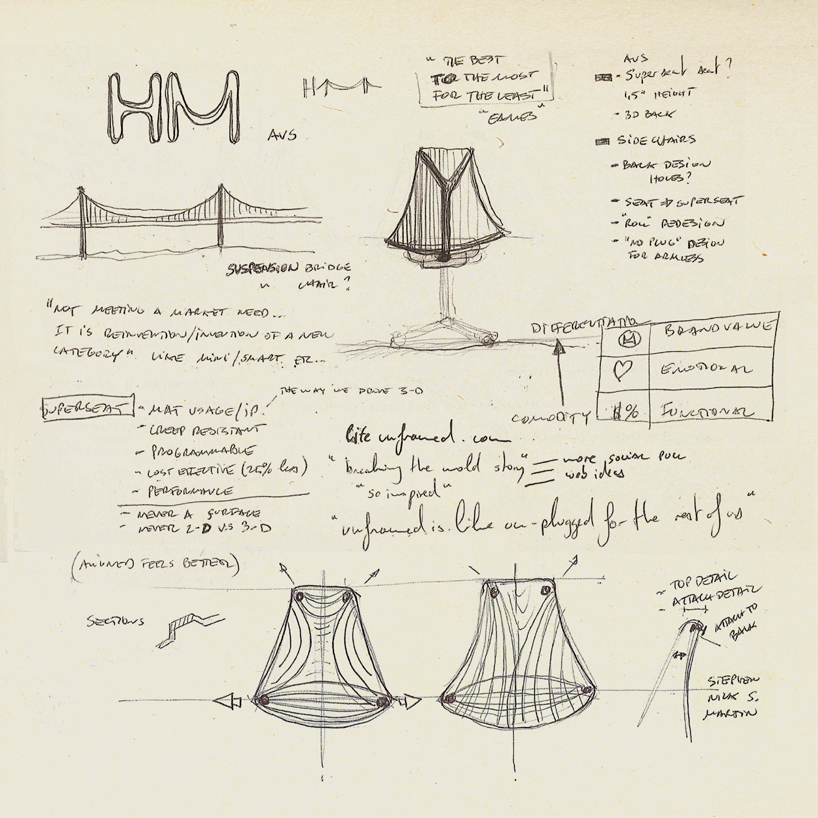 HM
AVS
HM
"THE BEST
TO THE MOST
FOR THE LEAST"
"EAMES"
AVS
- SUPERSEAT SEAT?
1,5" HEIGHT
- 3D BACK
SIDE CHAIRS
- BACK DESIGN
HOLES?
- SEAT ⇒ SUPERSEAT
- "ROW" REDESIGN
- "NO PLUG" DESIGN
FOR ARMLESS
SUSPENSION BRIDGE
" CHAIR?
"NOT MEETING A MARKET NEED...
IT IS REINVENTION/INVENTION OF A NEW
CATEGORY" LIKE MINI/SMART ETC...
DIFFERENTIATIO
BRAND VALUE
EMOTIONAL
$% FUNCTIONAL
COMODITY
SUPERSEAT
THE WAY WE DRIVE 3-D
- MAT USAGE/IP.
- CREEP RESISTANT
- PROGRAMMABLE
- COST EFFECTIVE (25% less)
- PERFORMANCE
- NEVER A SURFACE
- NEVER 2-D V.S 3-D
life unframed.com
"breaking the mold story"
more social
web ideas
"so inspired"
"unframed is like un-plugged for the rest of us"
(ALIGNED FEELS BETTER)
SECTIONS
- TOP DETAIL
- ATTACH DETAIL
ATTACH TO
BACK
STEPHEN
NICK S.
MARTIN